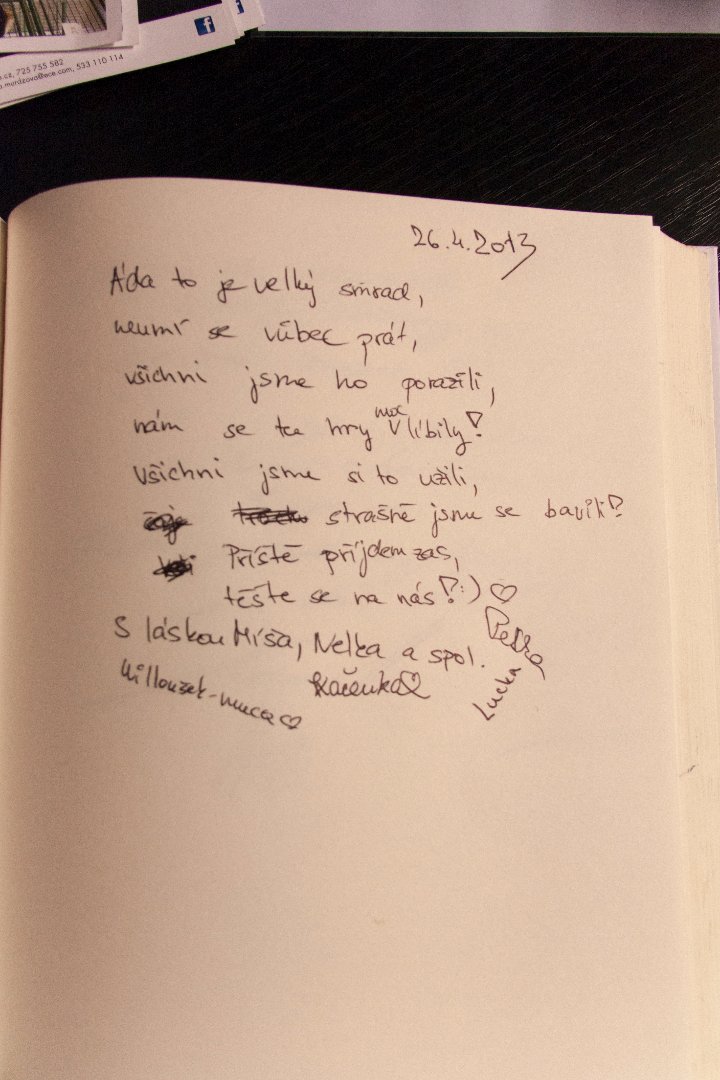 f
.cz, 725 755 582
533 110 114
26.4.2013
Áďa to je velký smrad,
neumí se vůbec prát,
všichni jsme ho porazili,
nám se tu hry moc líbily!
všichni jsme si to užili,
strašně jsme se bavili!
Příště příjdem zas,
těšte se na nás! :) ♡
S láskou Míša, Nelka a spol.
Petra
Lucka
Kačenka♡